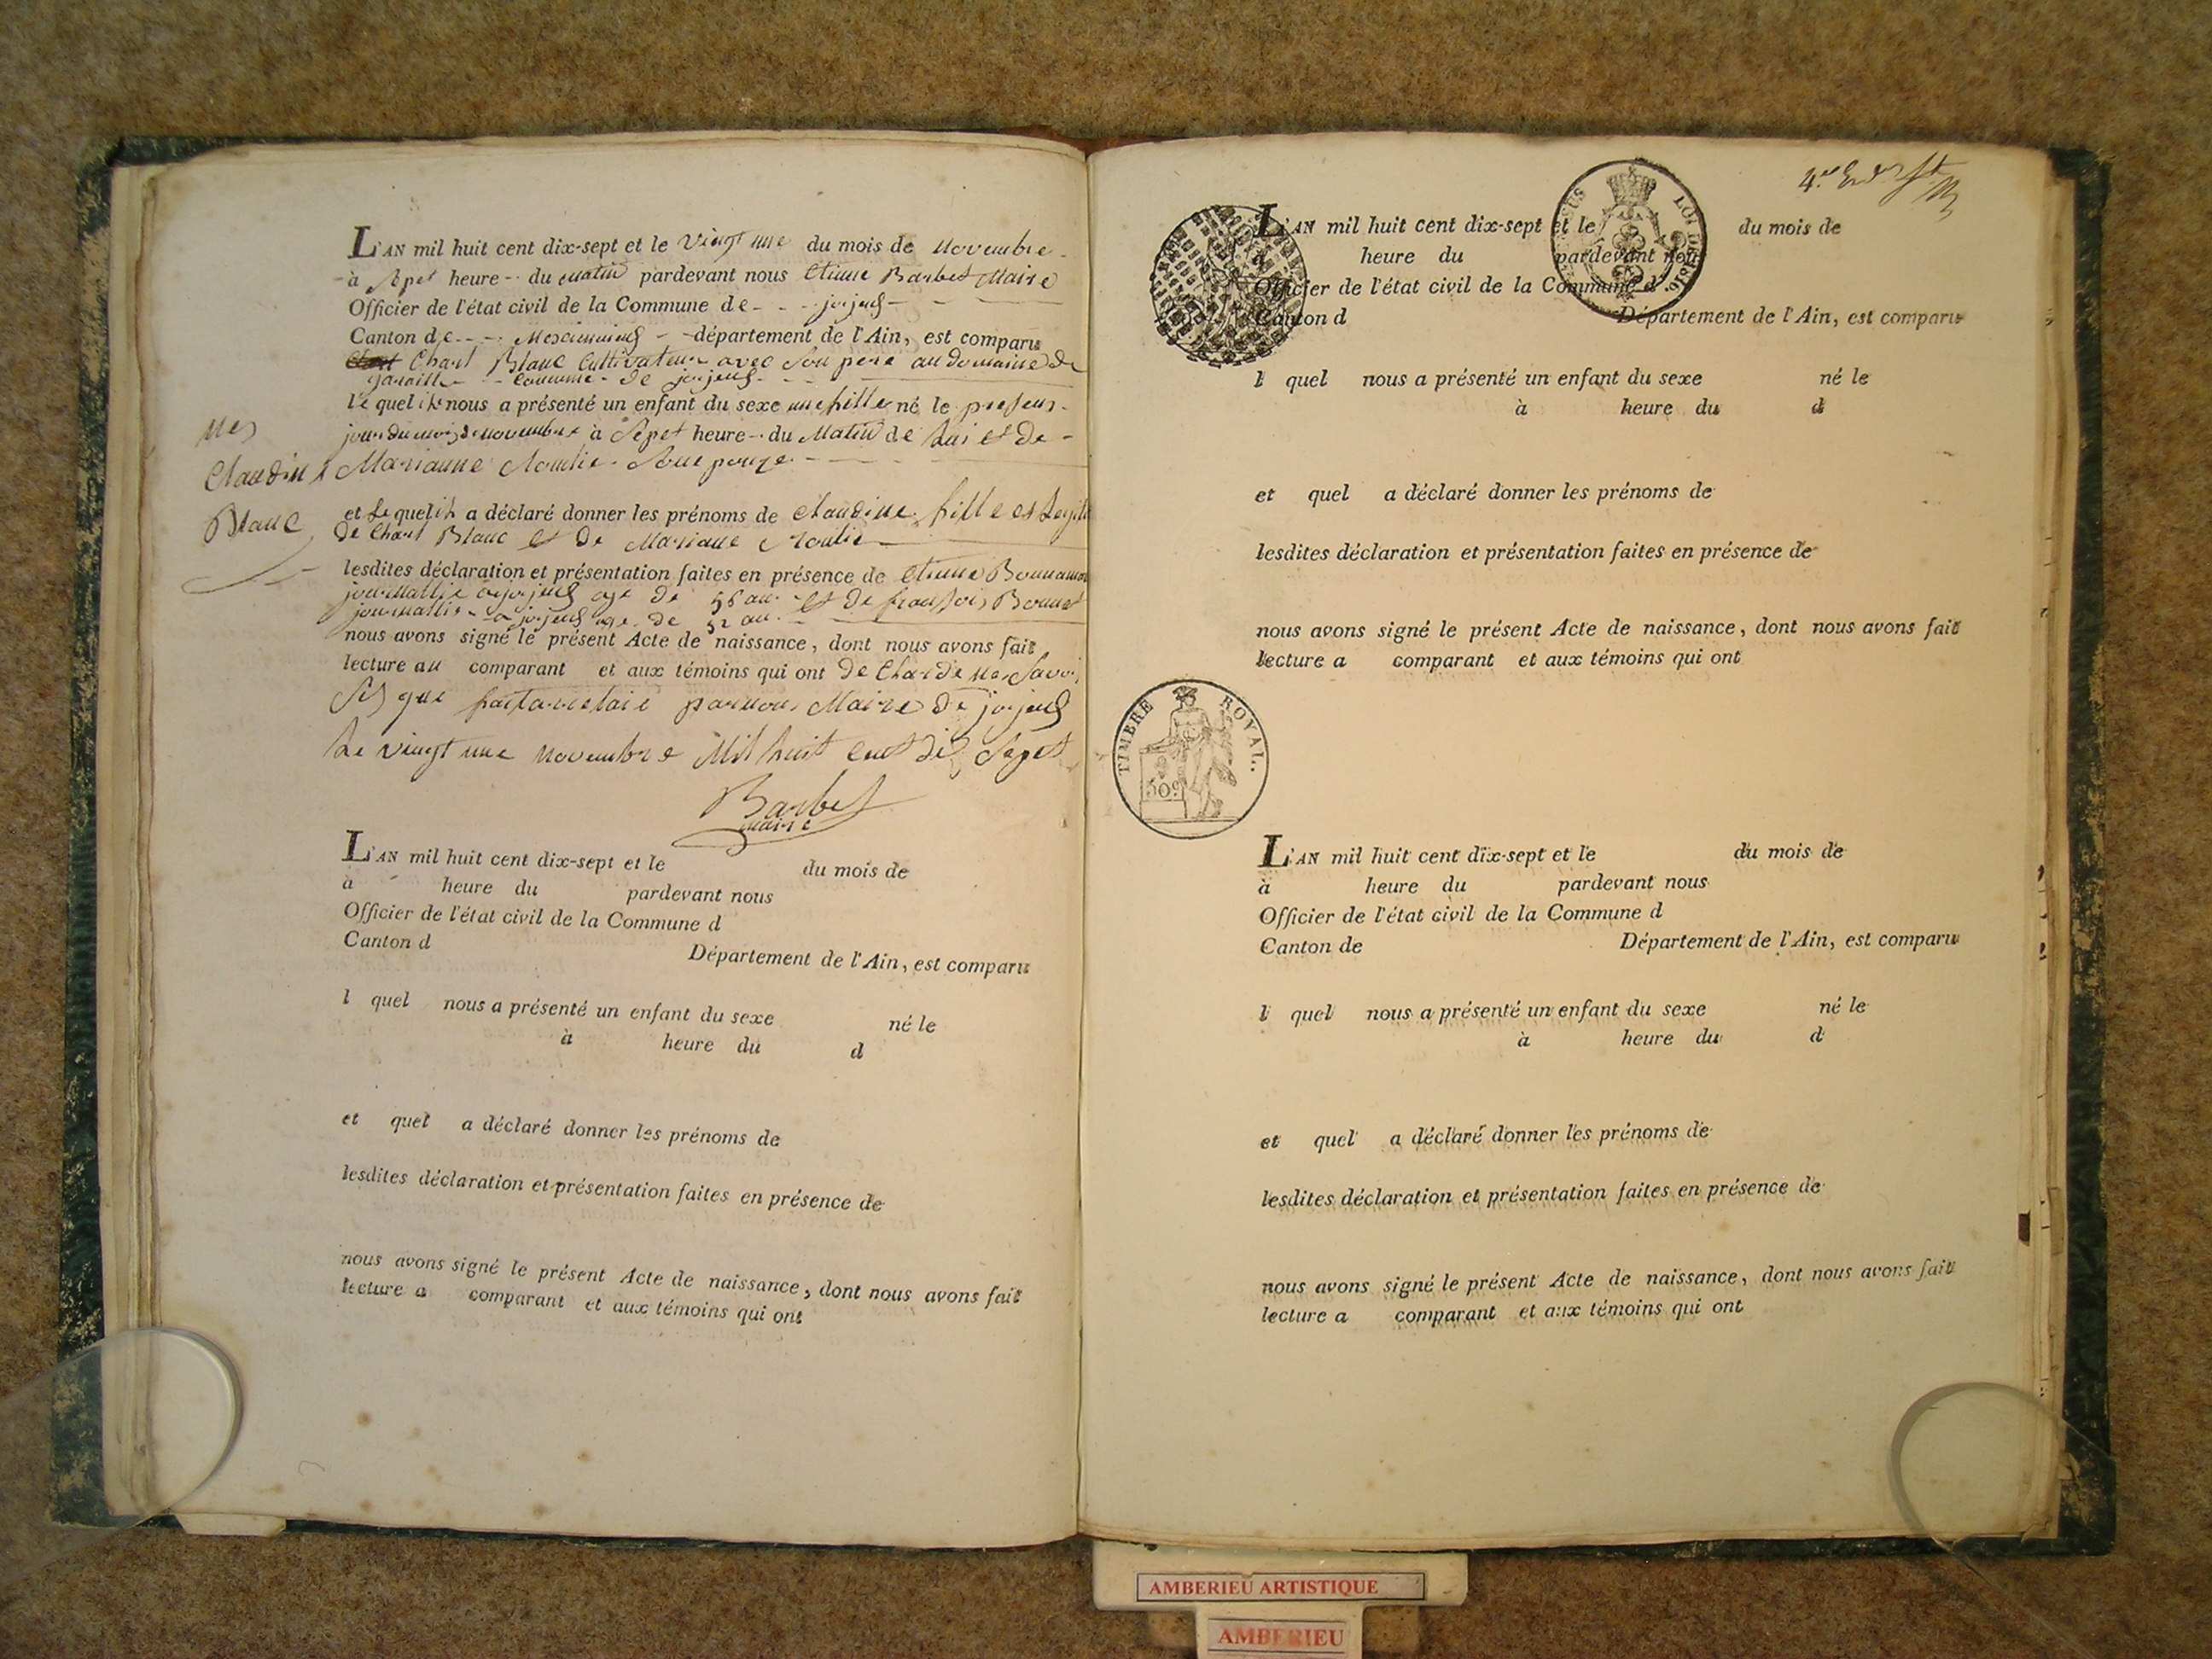 L'AN mil huit cent dix-sept et le vingt une du mois de novembre
à sepet heure du matin pardevant nous Etiene Barbet Maire
Officier de l'état civil de la Commune de joyeux
Canton de Meximieux département de l'Ain, est comparu
Charl Blanc Cultivateur avec son pere au domaine de
Commune de joyeux
le quel nous a présenté un enfant du sexe une fille né le presens
jour du mois de novembre à sepet heure du Matin de lui et de
nes
Claudine
Blanc
Marianne son epouze
et le quel a déclaré donner les prénoms de claudine fille
de Charl Blanc et de Mariane
lesdites déclaration et présentation faites en présence de etiene
journallie a joyeux age de 56 an et de fransois Bonnet
journallie a joyeux age de 52 an
nous avons signé le présent Acte de naissance, dont nous avons fait
lecture au comparant et aux témoins qui ont de
que par nous Maire de joyeux
Le vingt une novembre Mil huit cent dix sepet
Barbet
maire
L'AN mil huit cent dix-sept et le du mois de
à heure du pardevant nous
Officier de l'état civil de la Commune d
Canton d Département de l'Ain, est comparu
l quel nous a présenté un enfant du sexe né le
à heure du d
et quel a déclaré donner les prénoms de
lesdites déclaration et présentation faites en présence de
nous avons signé le présent Acte de naissance, dont nous avons fait
lecture a comparant et aux témoins qui ont
LOI DE 1816.
L'AN mil huit cent dix-sept et le du mois de
à heure du pardevant nous
Officier de l'état civil de la Commune d
Canton d Département de l'Ain, est comparu
l quel nous a présenté un enfant du sexe né le
à heure du d
et quel a déclaré donner les prénoms de
lesdites déclaration et présentation faites en présence de
nous avons signé le présent Acte de naissance, dont nous avons fait
lecture a comparant et aux témoins qui ont
TIMBRE ROYAL.
50c
L'AN mil huit cent dix-sept et le du mois de
à heure du pardevant nous
Officier de l'état civil de la Commune d
Canton de Département de l'Ain, est comparu
l quel nous a présenté un enfant du sexe né le
à heure du d
et quel a déclaré donner les prénoms de
lesdites déclaration et présentation faites en présence de
nous avons signé le présent Acte de naissance, dont nous avons fait
lecture a comparant et aux témoins qui ont
AMBERIEU ARTISTIQUE
AMBERIEU